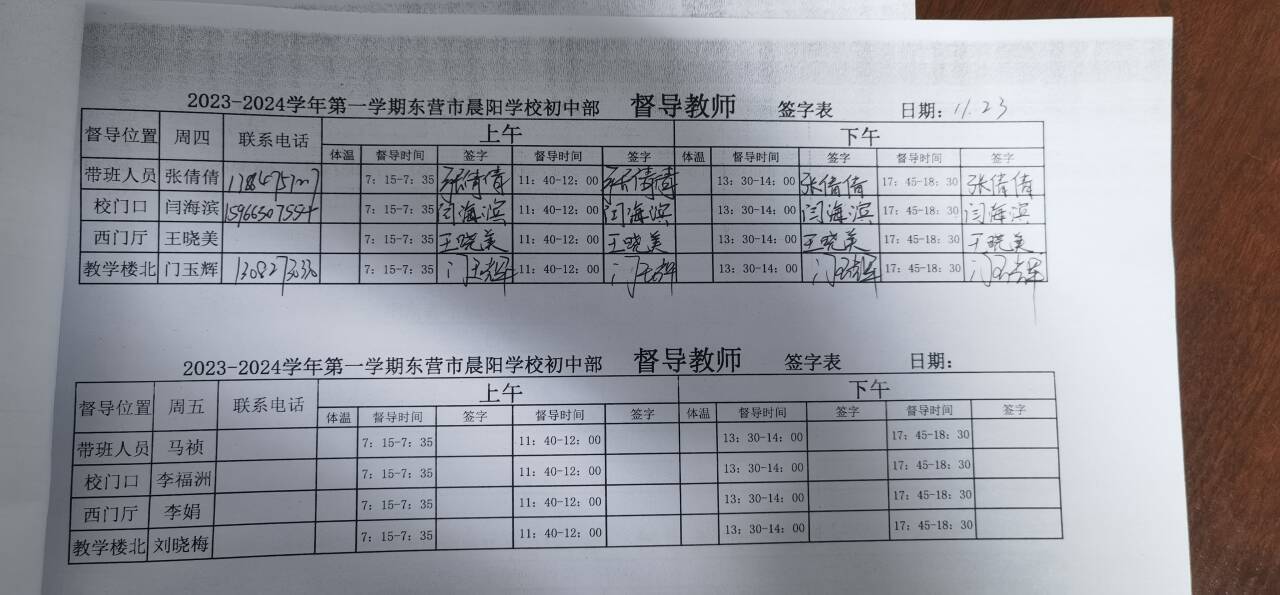 2023-2024学年第一学期东营市晨阳学校初中部 督导教师 签字表 日期：11.23
督导位置 周四 联系电话 上午 下午
体温 督导时间 签字 督导时间 签字 体温 督导时间 签字 督导时间 签字
带班人员 张倩倩 7：15-7：35 张倩倩 11：40-12：00 张倩倩 13：30-14：00 张倩倩 17：45-18：30 张倩倩
校门口 闫海滨 15966507594 7：15-7：35 闫海滨 11：40-12：00 闫海滨 13：30-14：00 闫海滨 17：45-18：30 闫海滨
西门厅 王晓美 7：15-7：35 王晓美 11：40-12：00 王晓美 13：30-14：00 王晓美 17：45-18：30 王晓美
教学楼北 门玉辉 7：15-7：35 门玉辉 11：40-12：00 门玉辉 13：30-14：00 门玉辉 17：45-18：30 门玉辉
2023-2024学年第一学期东营市晨阳学校初中部 督导教师 签字表 日期：
督导位置 周五 联系电话 上午 下午
体温 督导时间 签字 督导时间 签字 体温 督导时间 签字 督导时间 签字
带班人员 马祯 7：15-7：35 11：40-12：00 13：30-14：00 17：45-18：30
校门口 李福洲 7：15-7：35 11：40-12：00 13：30-14：00 17：45-18：30
西门厅 李娟 7：15-7：35 11：40-12：00 13：30-14：00 17：45-18：30
教学楼北 刘晓梅 7：15-7：35 11：40-12：00 13：30-14：00 17：45-18：30